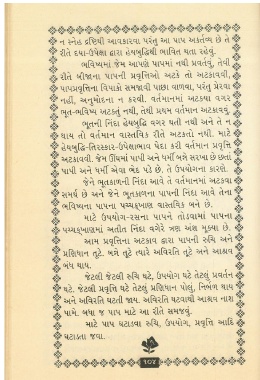 ન સ્નેહ દ્રષ્ટિથી આવકારવા પરંતુ આ પાપ અકર્તવ્ય છે તે
રીતે દયા-ઉપેક્ષા દ્વારા હેયબુદ્ધિથી ભાવિત થતા રહેવું.
ભવિષ્યમાં જેમ આપણે પાપમાં નથી પ્રવર્તવું, તેવી
રીતે બીજાના પાપની પ્રવૃત્તિઓ અટકે તો અટકાવવી,
પાપપ્રવૃત્તિના વિપાકો સમજાવી પાછા વાળવા, પરંતુ પ્રેરવા
નહીં, અનુમોદના ન કરવી. વર્તમાનમાં અટક્યા વગર
ભૂત-ભવિષ્ય અટકતું નથી, તેથી પ્રથમ વર્તમાન અટકાવવું.
ભૂતની નિંદા હેયબુદ્ધિ વગર થતી નથી અને તે ન
થાય તો વર્તમાન વાસ્તવિક રીતે અટકતો નથી. માટે
હેયબુદ્ધિ-તિરસ્કાર-ઉપેક્ષાભાવ પેદા કરી વર્તમાન પ્રવૃત્તિ
અટકાવવી. જેમ ઊંઘમાં પાપી અને ધર્મી બન્ને સરખા છે છતાં
પાપી અને ધર્મી એવા ભેદ પડે છે, તે ઉપયોગના કારણે.
જેને ભૂતકાળની નિંદા આવે તે વર્તમાનના અટકાવા
સમર્થ છે અને જેને ભૂતકાળના પાપની નિંદા આવે તેના
ભવિષ્યના પાપના પચ્ચક્‌ખાણ વાસ્તવિક બને છે.
માટે ઉપયોગ-રસના પાપને તોડવામાં પાપના
પચ્ચક્‌ખાણમાં અતીત નિંદા વગેરે ત્રણ અંશ મૂક્યા છે.
આમ પ્રવૃત્તિના અટકાવ દ્વારા પાપની રુચિ અને
પ્રણિધાન તૂટે. બન્ને તૂટે ત્યારે અવિરતિ તૂટે અને આશ્રવ
બંધ થાય.
જેટલી જેટલી રુચિ ઘટે, ઉપયોગ ઘટે તેટલું પ્રવર્તન
ઘટે. જેટલી પ્રવૃત્તિ ઘટે તેટલું પ્રણિધાન પોલું, નિર્બળ થાય
અને અવિરતિ ઘટતી જાય. અવિરતિ ઘટવાથી આશ્રવ નાશ
પામે. બધા જ પાપ માટે આ રીતે સમજવું.
માટે પાપ ઘટાડવા રુચિ, ઉપયોગ, પ્રવૃત્તિ આદિ
ઘટાડતા જવા.
૧૦૪